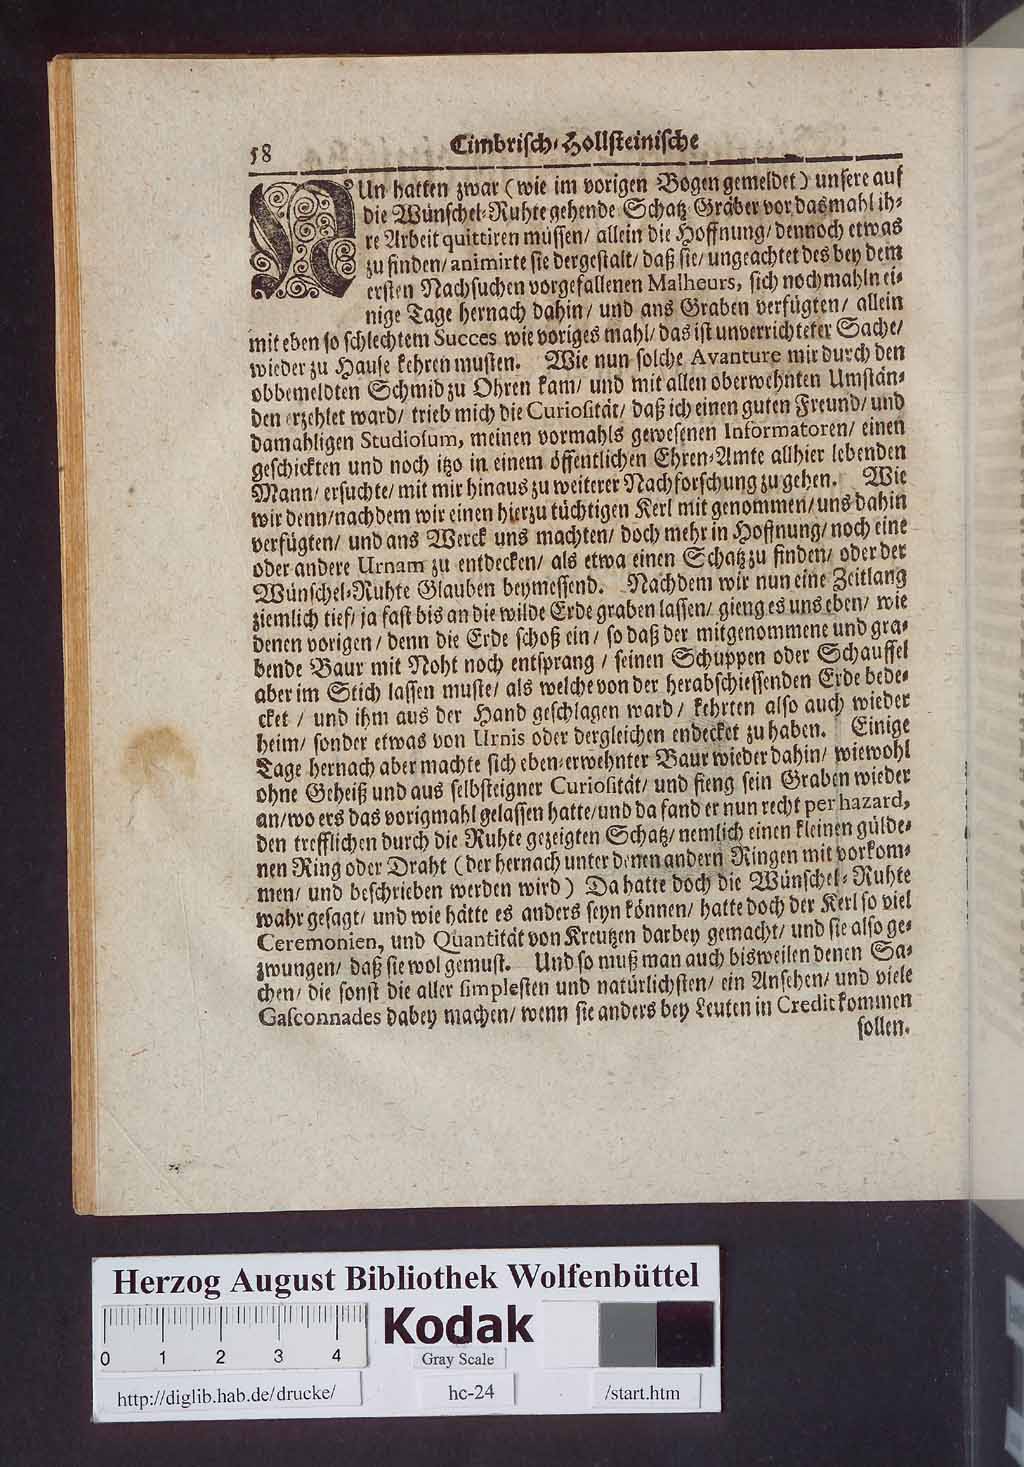 58
Cimbrisch-Hollsteinische
NUn hatten zwar (wie im vorigen Bogen gemeldet) unsere auf
die Wünschel-Ruhte gehende Schatz-Gräber vor dasmahl ih-
re Arbeit quittiren müssen/ allein die Hoffnung/ dennoch etwas
zu finden/ animirte sie dergestalt/ daß sie/ ungeachtet des bey dem
ersten Nachsuchen vorgefallenen Malheurs, sich nochmahln ei-
nige Tage hernach dahin/ und ans Graben verfügten/ allein
mit eben so schlechtem Succes wie voriges mahl/ das ist unverrichteter Sache/
wieder zu Hause kehren musten. Wie nun solche Avanture mir durch den
obbemeldten Schmid zu Ohren kam/ und mit allen oberwehnten Umstän-
den erzehlet ward/ trieb mich die Curiosität/ daß ich einen guten Freund/ und
damahligen Studiosum, meinen vormahls gewesenen Informatoren/ einen
geschickten und noch itzo in einem öffentlichen Ehren-Amte allhier lebenden
Mann/ ersuchte/ mit mir hinaus zu weiterer Nachforschung zu gehen. Wie
wir denn/ nachdem wir einen hierzu tüchtigen Kerl mit genommen/ uns dahin
verfügten/ und ans Werck uns machten/ doch mehr in Hoffnung/ noch eine
oder andere Urnam zu entdecken/ als etwa einen Schatz zu finden/ oder der
Wünschel-Ruhte Glauben beymessend. Nachdem wir nun eine Zeitlang
ziemlich tief/ ja fast bis an die wilde Erde graben lassen/ gieng es uns eben/ wie
denen vorigen/ denn die Erde schoß ein/ so daß der mitgenommene und gra-
bende Baur mit Noht noch entsprang/ seinen Schuppen oder Schauffel
aber im Stich lassen muste/ als welche von der herabschiessenden Erde bede-
cket/ und ihm aus der Hand geschlagen ward/ kehrten also auch wieder
heim/ sonder etwas von Urnis oder dergleichen endecket zu haben. Einige
Tage hernach aber machte sich eben-erwehnter Baur wieder dahin/ wiewohl
ohne Geheiß und aus selbsteigner Curiosität/ und fieng sein Graben wieder
an/ wo ers das vorigmahl gelassen hatte/ und da fand er nun recht per hazard,
den trefflichen durch die Ruhte gezeigten Schatz/ nemlich einen kleinen gülde-
nen Ring oder Draht (der hernach unter denen andern Ringen mit vorkom-
men/ und beschrieben werden wird) Da hatte doch die Wünschel-Ruhte
wahr gesagt/ und wie hätte es anders seyn können/ hatte doch der Kerl so viel
Ceremonien, und Quantität von Kreutzen darbey gemacht/ und sie also ge-
zwungen/ daß sie wol gemust. Und so muß man auch bisweilen denen Sa-
chen/ die sonst die aller simplesten und natürlichsten/ ein Ansehen/ und viele
Gasconnades dabey machen/ wenn sie anders bey Leuten in Credit kommen
sollen.
Herzog August Bibliothek Wolfenbüttel
0 1 2 3 4
Kodak
Gray Scale
http://diglib.hab.de/drucke/
hc-24
/start.htm